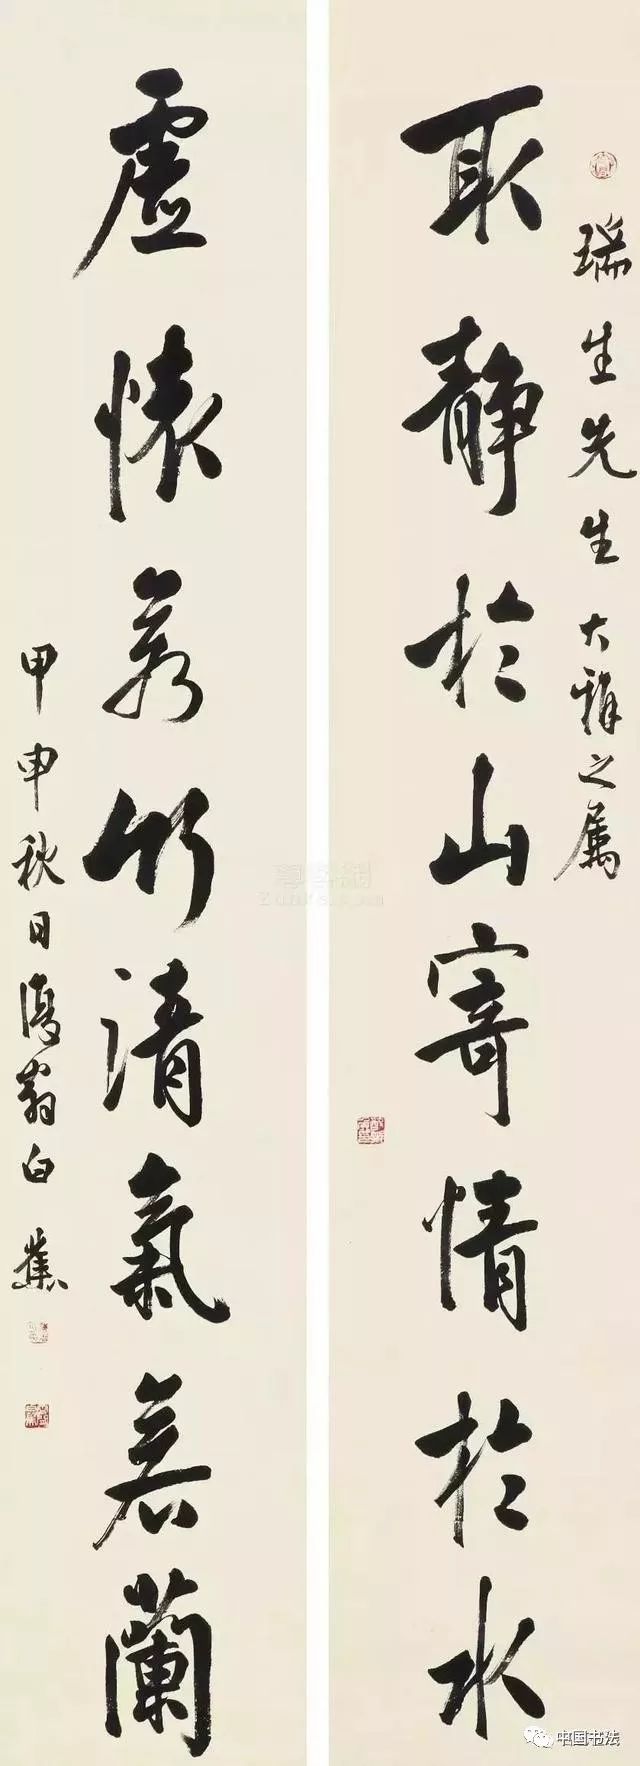 瑞生先生大雅之属
取静於山寄情於水
虚懐若竹清氣若蘭
甲申秋日復翁白蕉
中国书法